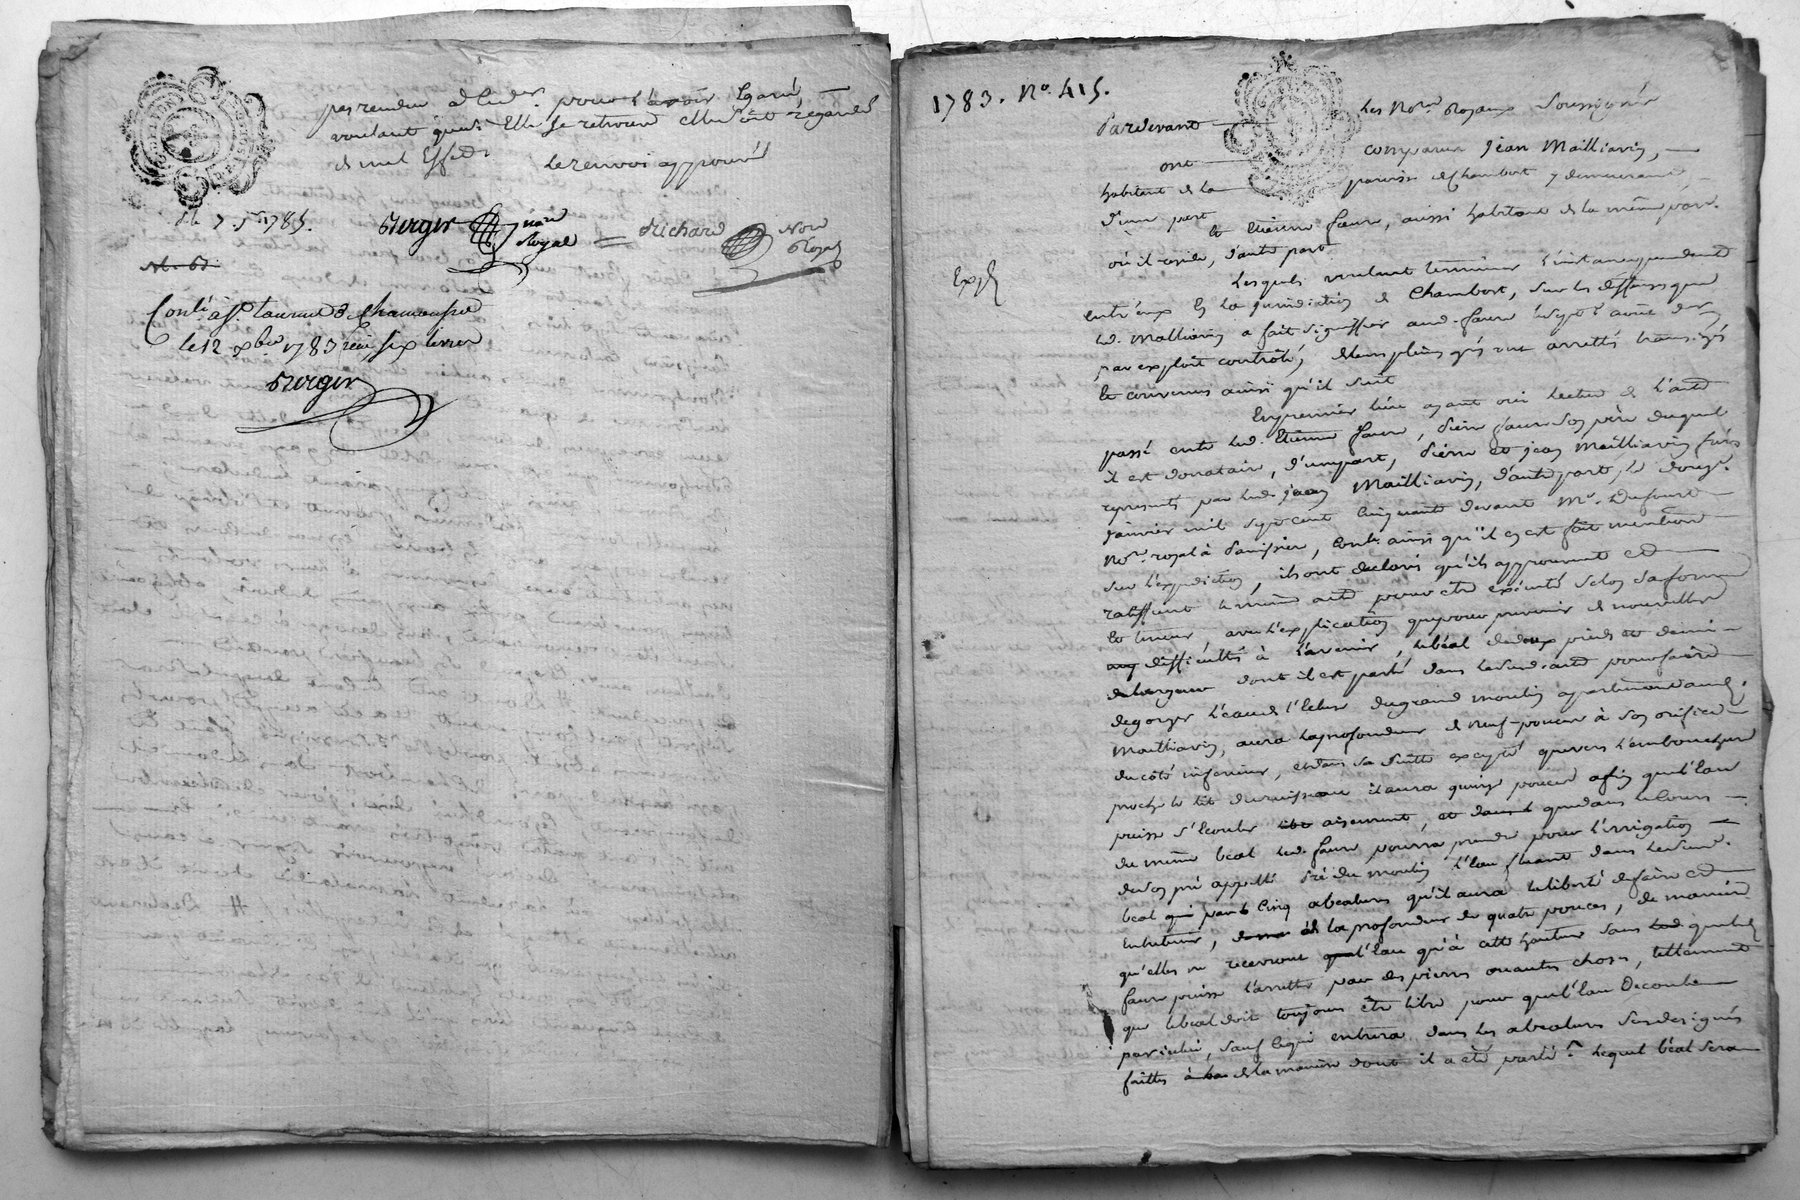 pas rendu aud. pour l'avoir Egaré,
voulant que si Elle se retrouve elle soit regardée
de nul Effet. le renvoi approuvé
Berger nore Royal Richard Nore Royal
Contlé à St. Laurent de Chamousset
le 12 xbre 1783 reçu six livres
Berger
1783. No. 415.
Pardevant les Nores. Royaux Soussignés
ont comparu Jean Mailliavin,
habitant de la paroisse de Chambost y demeurant,
d'une part
et Etienne faure, aussi habitant de la même parr.
où il reside, d'autre part
Lesquels voulant terminer l'instance pendante
Expé
entr'eux En la jurisdiction de Chambost, sur les deffenses que
led. Malliavin a fait signiffier aud. faure
par exploit contrôlé, de leurs pleins grés ont arretté, transigés
et convenus ainsi qu'il suit
En premier lieu ayant oui lecture de l'acte
passé entre led. Etienne faure, Pierre faure son père duquel
il est donataire, d'une part, Pierre et jean Mailliavin freres
representés par led. jean Mailliavin, d'autre part, le douze.
Janvier mil sept cent Cinquante devant Me. Dufournel
Nore. royal à Panissieres, Contlé. ainsi qu'il en est fait mention
sur l'expedition, ils ont declarés qu'ils approuvent et
ratiffient le même acte pour être executé selon sa forme
et teneur, avec l'explication que pour prevenir de nouvelles
difficultés à l'avenir, le béal de deux pieds et demi
de largeur dont il est parlé dans le susd. acte pour faire
degorger l'eau de l'Ecluse du grand moulin apartenant aud.
Mailliavin, aura la profondeur de Neuf pouces à son orifice
du côté inferieur, et dans sa suitte excepté que vers l'embouchure
proche le lit du ruisseau il aura quinze pouces afin que l'eau
puisse s'écouler aisement, et que dans le cours
du même béal led. faure pourra prendre pour l'irrigation
de son pré appellé Pré du moulin l'eau fluant dans le susd.
béal par Cinq abeatures qu'il aura la liberté de faire et
entretenir, de la profondeur de quatre pouces, de maniere
qu'elles ne recevront l'eau qu'à cette hauteur sans que led.
faure puisse l'arretter par des pierres ou autres choses, tellement
que le béal doit toujours être libre pour que l'eau decoule
par icelui, sauf ce qui entrera dans les abeatures susdesignés
faittes de la maniere dont il a été parlé. Lequel béal sera